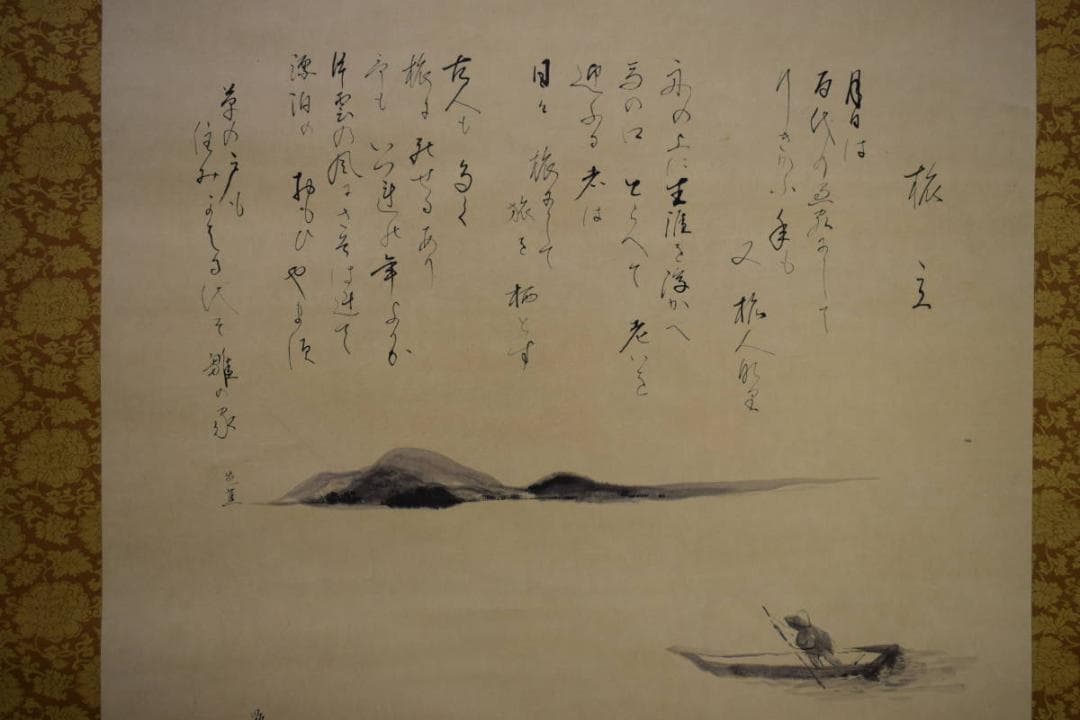 旅立
月日は
百代の過客にして
行きかふ年も
又旅人なり
舟の上に生涯を浮かへ
馬の口とらへて老いを
迎ふる者は
日々旅にして
旅を栖とす
古人も多く
旅に死せるあり
予もいつれの年よりか
片雲の風にさそはれて
漂泊の思ひやます
草の戸も
住み替はる代そ雛の家
芭蕉